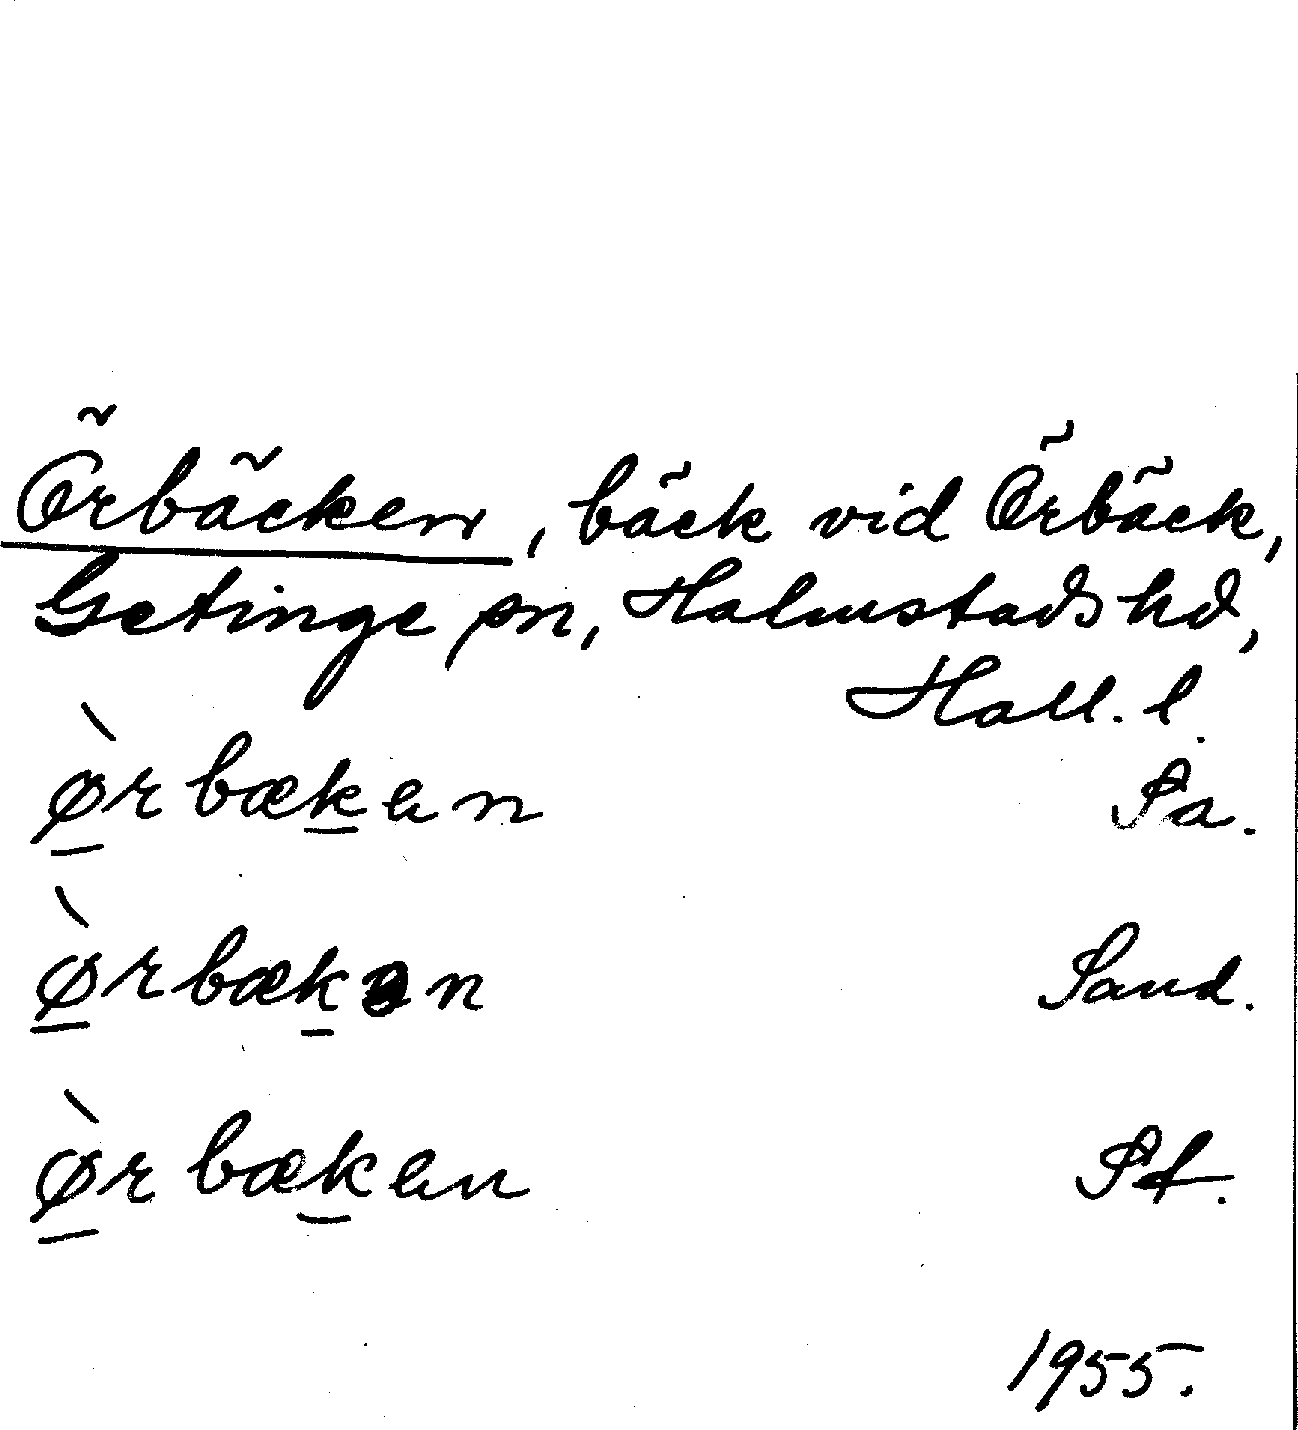 Örbäcken, bäck vid Örbäck,
Getinge sn, Halmstads hd,
Hall. l.
ø̀rbækən Sa.
ø̀rbækən Sand.
ø̀rbækən St.
1955.